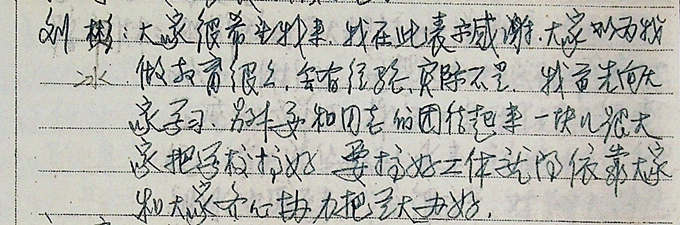 刘彬：大家很希望我来，我在此表示感谢，大家以为我
做教育很久，会有经验，实际不是，我首先向大
家学习，另外要和同志们团结起来一块儿跟大
家把学校搞好，要搞好工作就得依靠大家
和大家齐心协力把三大办好．